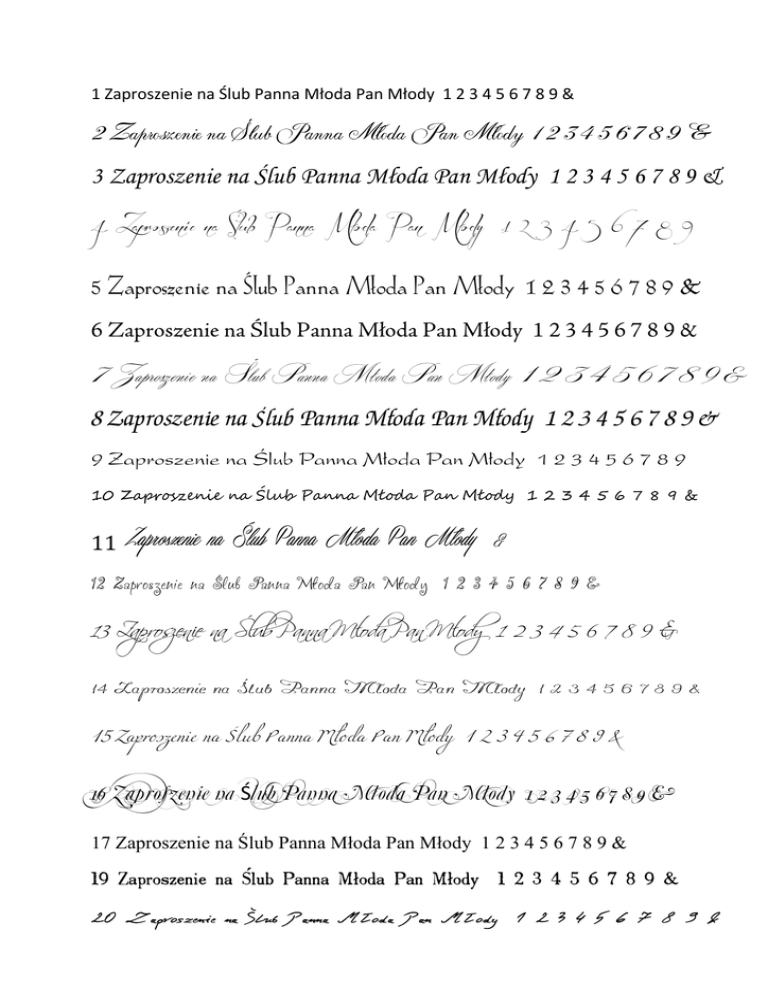 1 Zaproszenie na Ślub Panna Młoda Pan Młody 1 2 3 4 5 6 7 8 9 &
2 Zaproszenie na Ślub Panna Młoda Pan Młody 1 2 3 4 5 6 7 8 9 &
3 Zaproszenie na Ślub Panna Młoda Pan Młody 1 2 3 4 5 6 7 8 9 &
4 Zaproszenie na Ślub Panna Młoda Pan Młody 1 2 3 4 5 6 7 8 9
5 Zaproszenie na Ślub Panna Młoda Pan Młody 1 2 3 4 5 6 7 8 9 &
6 Zaproszenie na Ślub Panna Młoda Pan Młody 1 2 3 4 5 6 7 8 9 &
7 Zaproszenie na Ślub Panna Młoda Pan Młody 1 2 3 4 5 6 7 8 9 &
8 Zaproszenie na Ślub Panna Młoda Pan Młody 1 2 3 4 5 6 7 8 9 &
9 Zaproszenie na Ślub Panna Młoda Pan Młody 1 2 3 4 5 6 7 8 9
10 Zaproszenie na Ślub Panna Młoda Pan Młody 1 2 3 4 5 6 7 8 9 &
11 Zaproszenie na Ślub Panna Młoda Pan Młody &
12 Zaproszenie na Ślub Panna Młoda Pan Młody 1 2 3 4 5 6 7 8 9 &
13 Zaproszenie na Ślub Panna Młoda Pan Młody 1 2 3 4 5 6 7 8 9 &
14 Zaproszenie na Ślub Panna Młoda Pan Młody 1 2 3 4 5 6 7 8 9 &
15 Zaproszenie na Ślub Panna Młoda Pan Młody 1 2 3 4 5 6 7 8 9 &
16 Zaproszenie na Ślub Panna Młoda Pan Młody 1 2 3 4 5 6 7 8 9 &
17 Zaproszenie na Ślub Panna Młoda Pan Młody 1 2 3 4 5 6 7 8 9 &
19 Zaproszenie na Ślub Panna Młoda Pan Młody 1 2 3 4 5 6 7 8 9 &
20 Zaproszenie na Ślub Panna Młoda Pan Młody 1 2 3 4 5 6 7 8 9 &